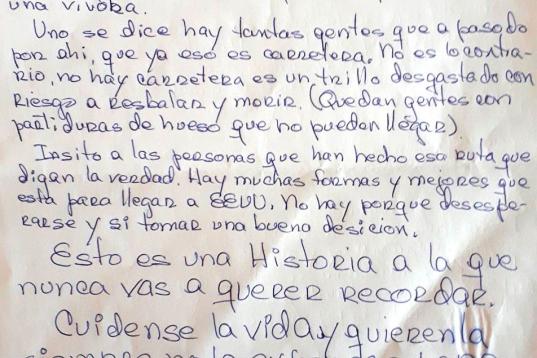 una vivora.
Uno se dice hay tantas gentes que a pasado
por ahi, que ya eso es carretera. No es lo contra-
rio, no hay carretera es un trillo desgastado con
Riesgo a Resbalar y morir. (Quedan gentes con
partiduras de hueso que no puedan llegar).
Insito a las personas que han hecho esa ruta que
digan la verdad. Hay muchas formas y mejores que
esta para llegar a EEUU. No hay porque desespe-
rarse y si tomar una bueno desicion.
Esto es una Historia a la que
nunca vas a querer recordar.
Cuidense la vida y quieren la